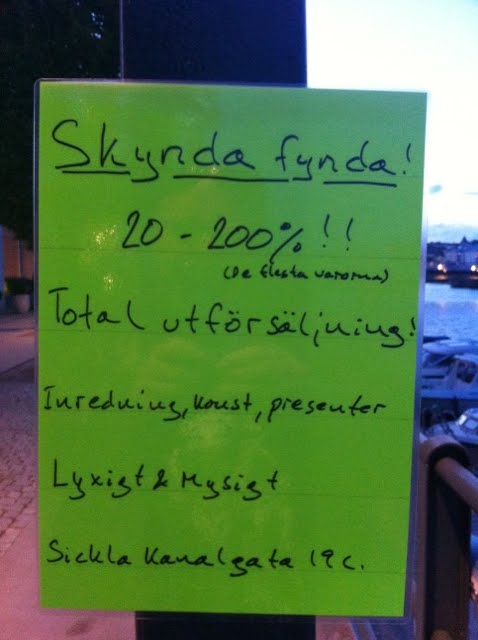 Skynda fynda!
20 - 200%!!
(De flesta varorna)
Total utförsäljning!
Inredning, konst, presenter
Lyxigt & Mysigt
Sickla Kanalgata 19 c.